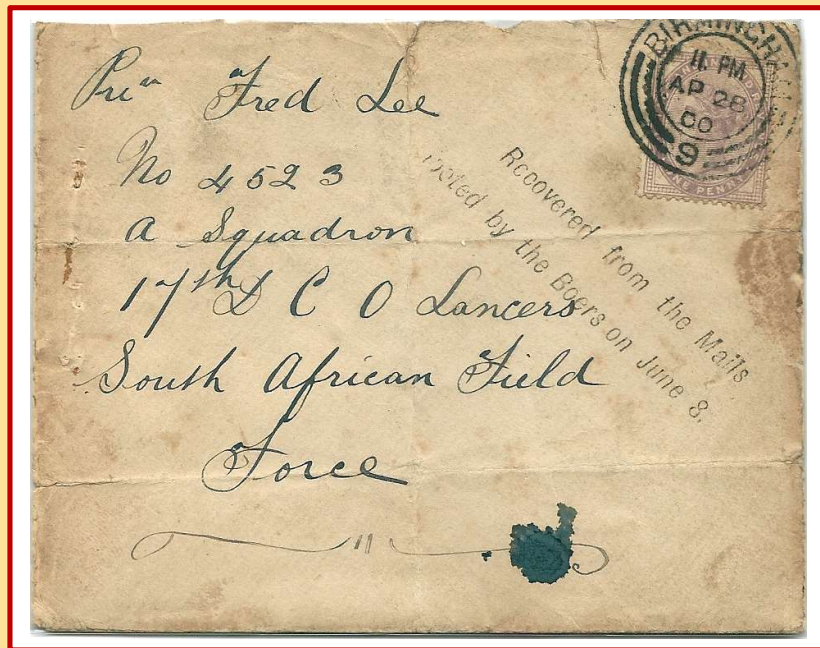 BIRMINGHAM
11 PM
AP 28
00
9
PENNY
Fred Lee
No 4523
A Squadron
17th D C O Lancers
South African Field
Force
Rcovered from the Mails
looted by the Boers on June 8.